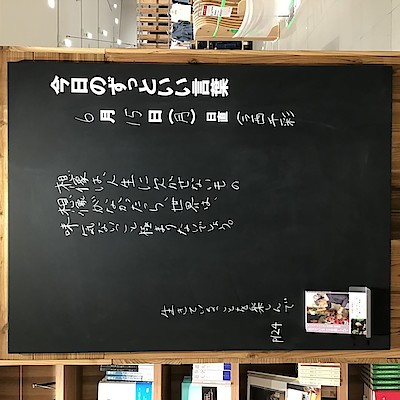 今日のずっといい言葉
6月15日(月)日直(今西千彩)
想像は、人生に欠かせないもの
想像がなかったら、世界は、
味気ないこと極まりないでしょう。
生きていることを楽しんで
P124